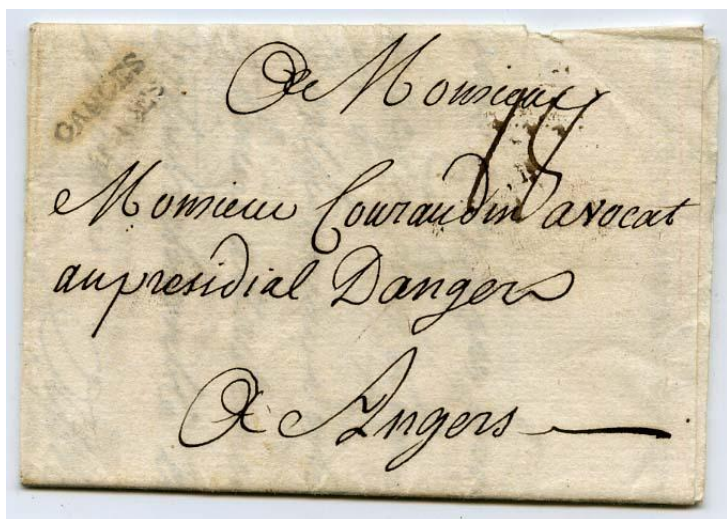 A Monsieur
Monsieur Couraudin avocat
au presidial Dangers
A Angers